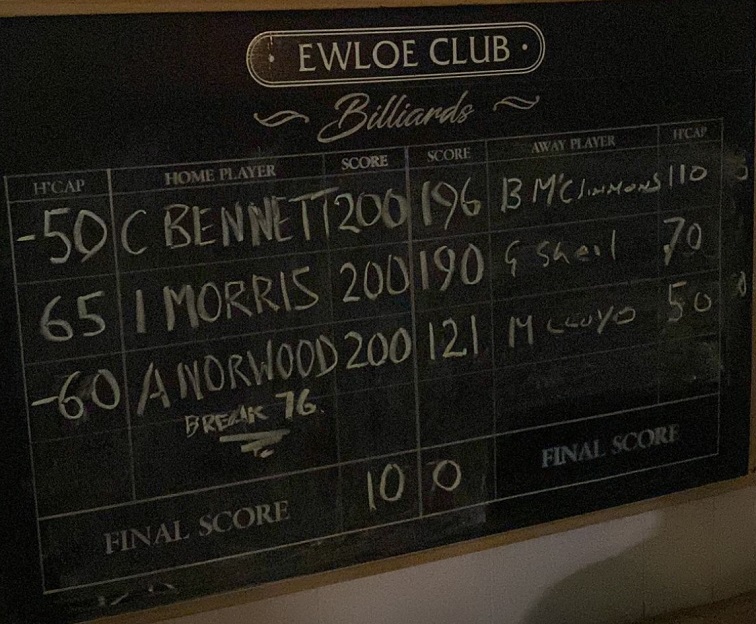 EWLOE CLUB
Billiards
H'CAP HOME PLAYER SCORE SCORE AWAY PLAYER H'CAP
-50 C BENNETT 200 196 B McClimmons 110
65 I MORRIS 200 190 G Sheil 70
-60 A NORWOOD 200 121 M LLOYD 50
BREAK 76.
FINAL SCORE 10 0 FINAL SCORE